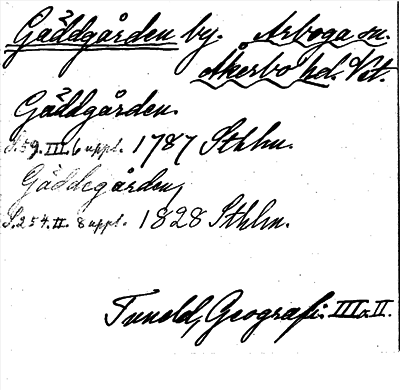 Gäddgården by. Arboga sn.
Åkerbo hd. Vstm.
Gäddgården.
S. 59. III. 6 uppl. 1787 Sthlm.
Gäddegården,
S. 254. II. 8 uppl. 1828 Sthlm.
Tuneld, Geografi: III o. II.